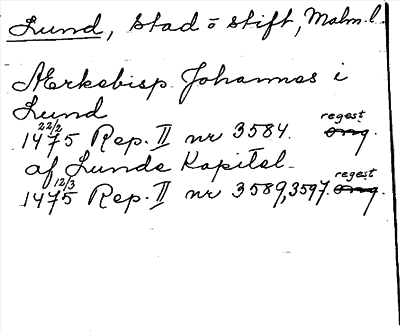 Lund, Stad o Stift, Malm. l.
Ärkebisp. Johannes i
Lund
1475 22/2 Rep. II nr 3584. regest omg.
af Lunds Kapitel.
1475 12/3 Rep. II nr 3589, 3597. regest omg.